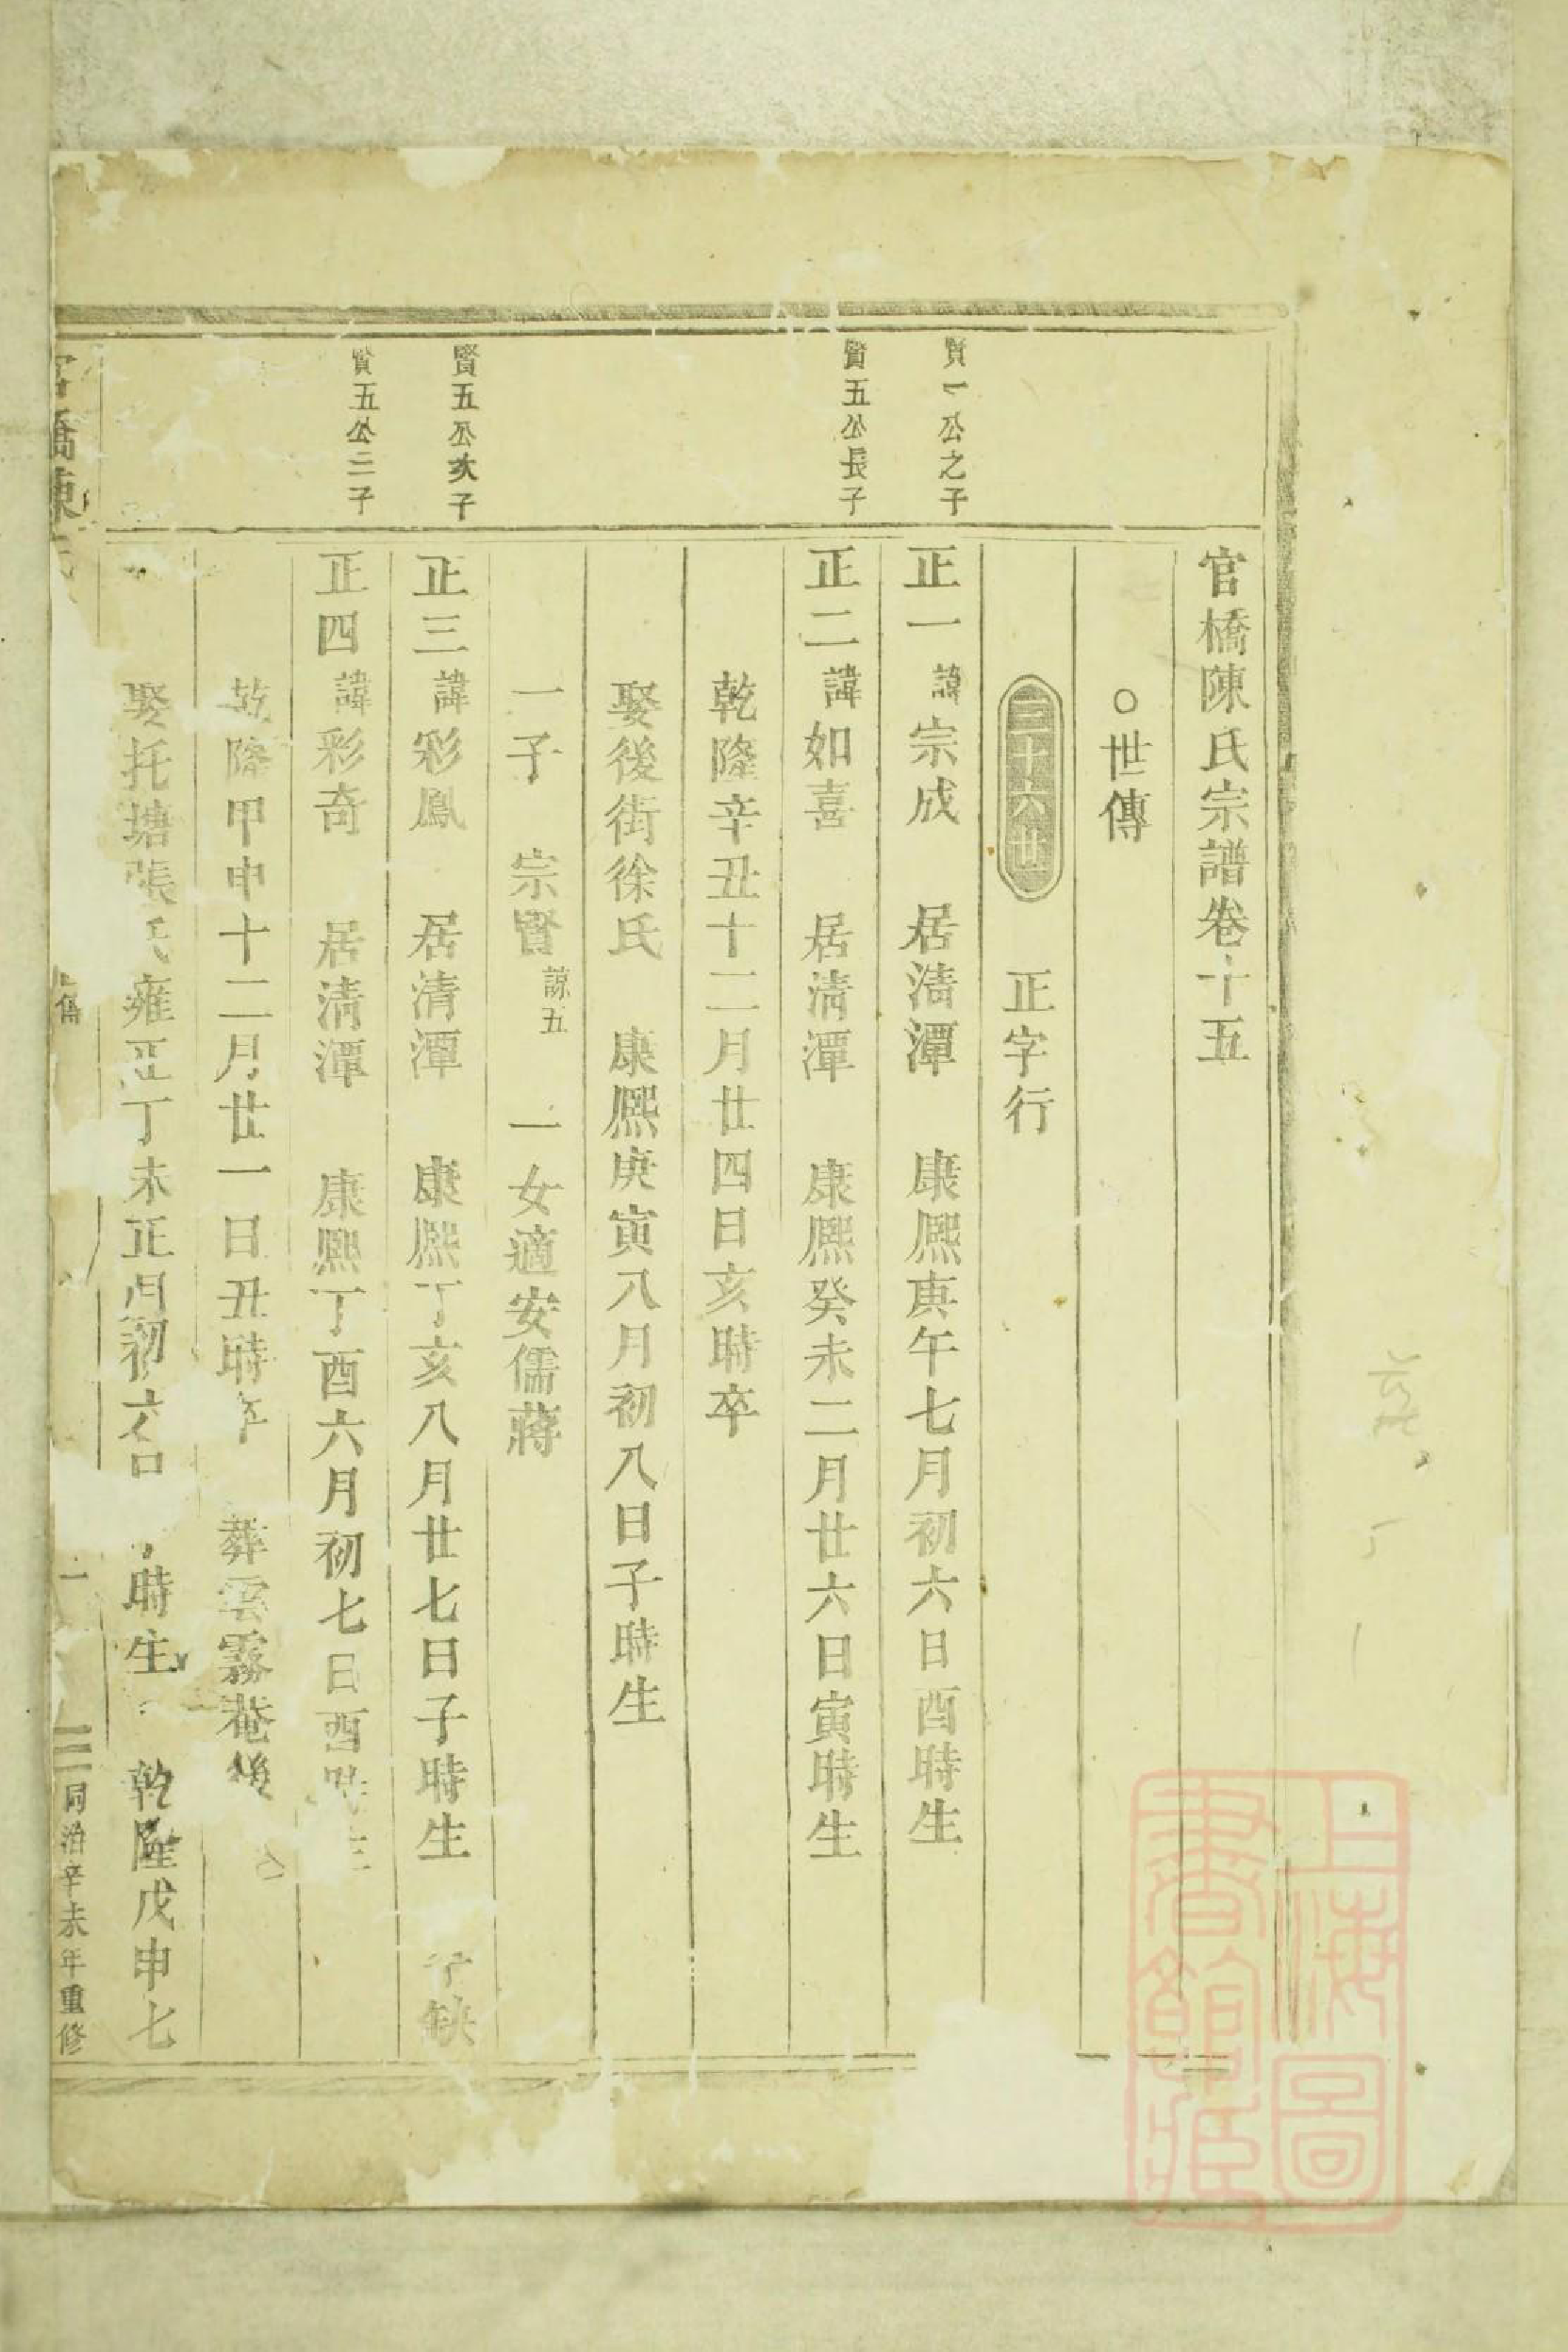 官橋陳氏宗譜卷十五
○世傳
三十六世 正字行
賢一公之子
正一諱宗成 居清潭 康熙庚午七月初六日酉時生
賢五公長子
正二諱如喜 居清潭 康熙癸未二月廿六日寅時生
乾隆辛丑十二月廿四日亥時卒
娶後街徐氏 康熙庚寅八月初八日子時生
一子 宗賢諒五 一女適安儒蔣
賢五公次子
正三諱彩鳳 居清潭 康熙丁亥八月廿七日子時生 子缺
賢五公三子
正四諱彩奇 居清潭 康熙丁酉六月初七日酉時生
乾隆甲申十二月廿一日丑時卒 葬雲霧菴後
娶托塘張氏雍正丁未正月初六日 時生 乾隆戊申七
橋陳
一
同治辛未年重修
上海圖書館藏